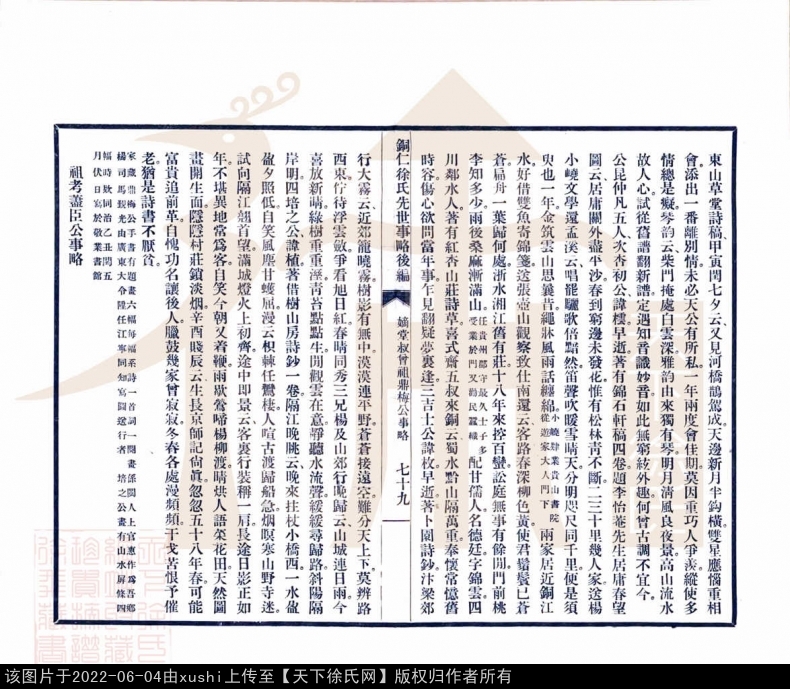 東山草堂詩稿甲寅閏七夕云又見河橋鵲駕成天邊新月半鈎橫雙星應惱重相
會添出一番離別情未必天公有所私一年兩度會佳期莫因重巧人爭羨縱使多
情總是癡琴韵云柴門掩處白雲深雅韵由來獨有琴明月清風良夜景高山流水
故人心試從舊譜翻新譜定遇知音識妙音如此無窮絃外趣何曾古調不宜今
公昆仲凡五人次杏初公諱樸早逝著有錦石軒稿四卷題李怡菴先生居庸春望
圖云居庸關外盡平沙春到窮邊未發花惟有松林靑不斷二三十里幾人家送楊
小嶢文學還孟溪云唱罷驪歌倍黯然笛聲吹暖雪晴天分明咫尺同千里便是須
臾也一年金筑雲山思義肯繩牀風雨話纏綿小嶢肄業貴山書院從遊家大人門下兩家居近銅江
水好借雙魚寄錦箋送張壺山觀察致仕南還云客路春深柳色黃使君鬢鬢已蒼
蒼扁舟一葉歸何處浙水湘江舊有莊十八年來控百蠻訟庭無事有餘閒門前桃
李知多少雨後桑麻漸滿山任貴州郡守最久士子多受業於門又勸民蠶織配甘儒人名德廷字錦雲四
川鄰水人著有紅杏山莊詩草喜式齋五叔來銅云蜀水黔山隔萬重奉懷常憶舊
時容傷心欲問當年事乍見翻疑夢裏逢三吉士公諱枚早逝著卜園詩鈔汴梁郊
銅仁徐氏先世事略後編
嫡堂叔曾祖鼎梅公事略
七十九
行大霧云近郊籠曉霧樹影有無中漠漠連平野蒼蒼接遠空難分天上下莫辨路
西東佇待浮雲斂爭看旭日紅春晴同秀三兄楊及山郊行晚歸云山城連日雨今
喜放新晴綠樹重重溼靑苔點點生閒觀雲在意靜聽水流聲緩緩尋歸路斜陽隔
岸明四培之公諱植著借樹山房詩鈔一卷隔江晚眺云晚來拄杖小橋西一水盈
盈夕照低自笑風塵甘蠖屈漫云枳棘任鸞棲人喧古渡歸船急烟暝寒山野寺迷
試向隔江翹首望滿城燈火上初齊途中即景云客裏行裝稱一肩長途日影正如
年不堪異地常爲客自笑今朝又着鞭兩歇鶯啼楊柳渡晴烘人語菜花田天然圖
畫開生面隱隱村莊鎖淡烟辛酉賤辰云生長京師記尙眞忽忽五十八年春可能
富貴追前革自愧功名讓後人臘鼓幾家曾寂寂冬春各處漫頻頻干戈苦恨予催
老猶是詩書不厭貧
家藏鼎梅公手書有題畫六幅每幅系詩一首詞一闋畫係閩人上官惠作爲吾鄉
楊司馬叙光由廣東大令陞任江寧同知寫圖送行者 培之公畫有山水屏條四
幅時欵同治乙丑閏五
月伏日寫於敬業書館
祖考藎臣公事略
该图片于2022-06-04由xushi上传至【天下徐氏网】版权归作者所有